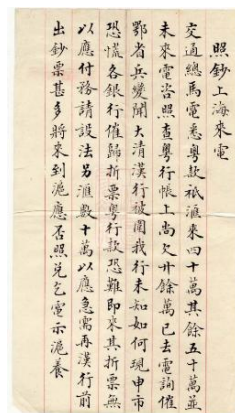 照鈔上海來電
交通總馬電悉粵款祇滙來四十萬其餘五十萬並
未來電咨照查粵行帳上尚欠廿餘萬已去電詢催
鄂省兵變聞大清漢行被圍我行未知如何現申市
恐慌各銀行催歸折票粵行款恐難即來其折票無
以應付務請設法另滙數十萬以應急需再漢行前
出鈔票甚多將來到滬應否照兌乞電示滬養